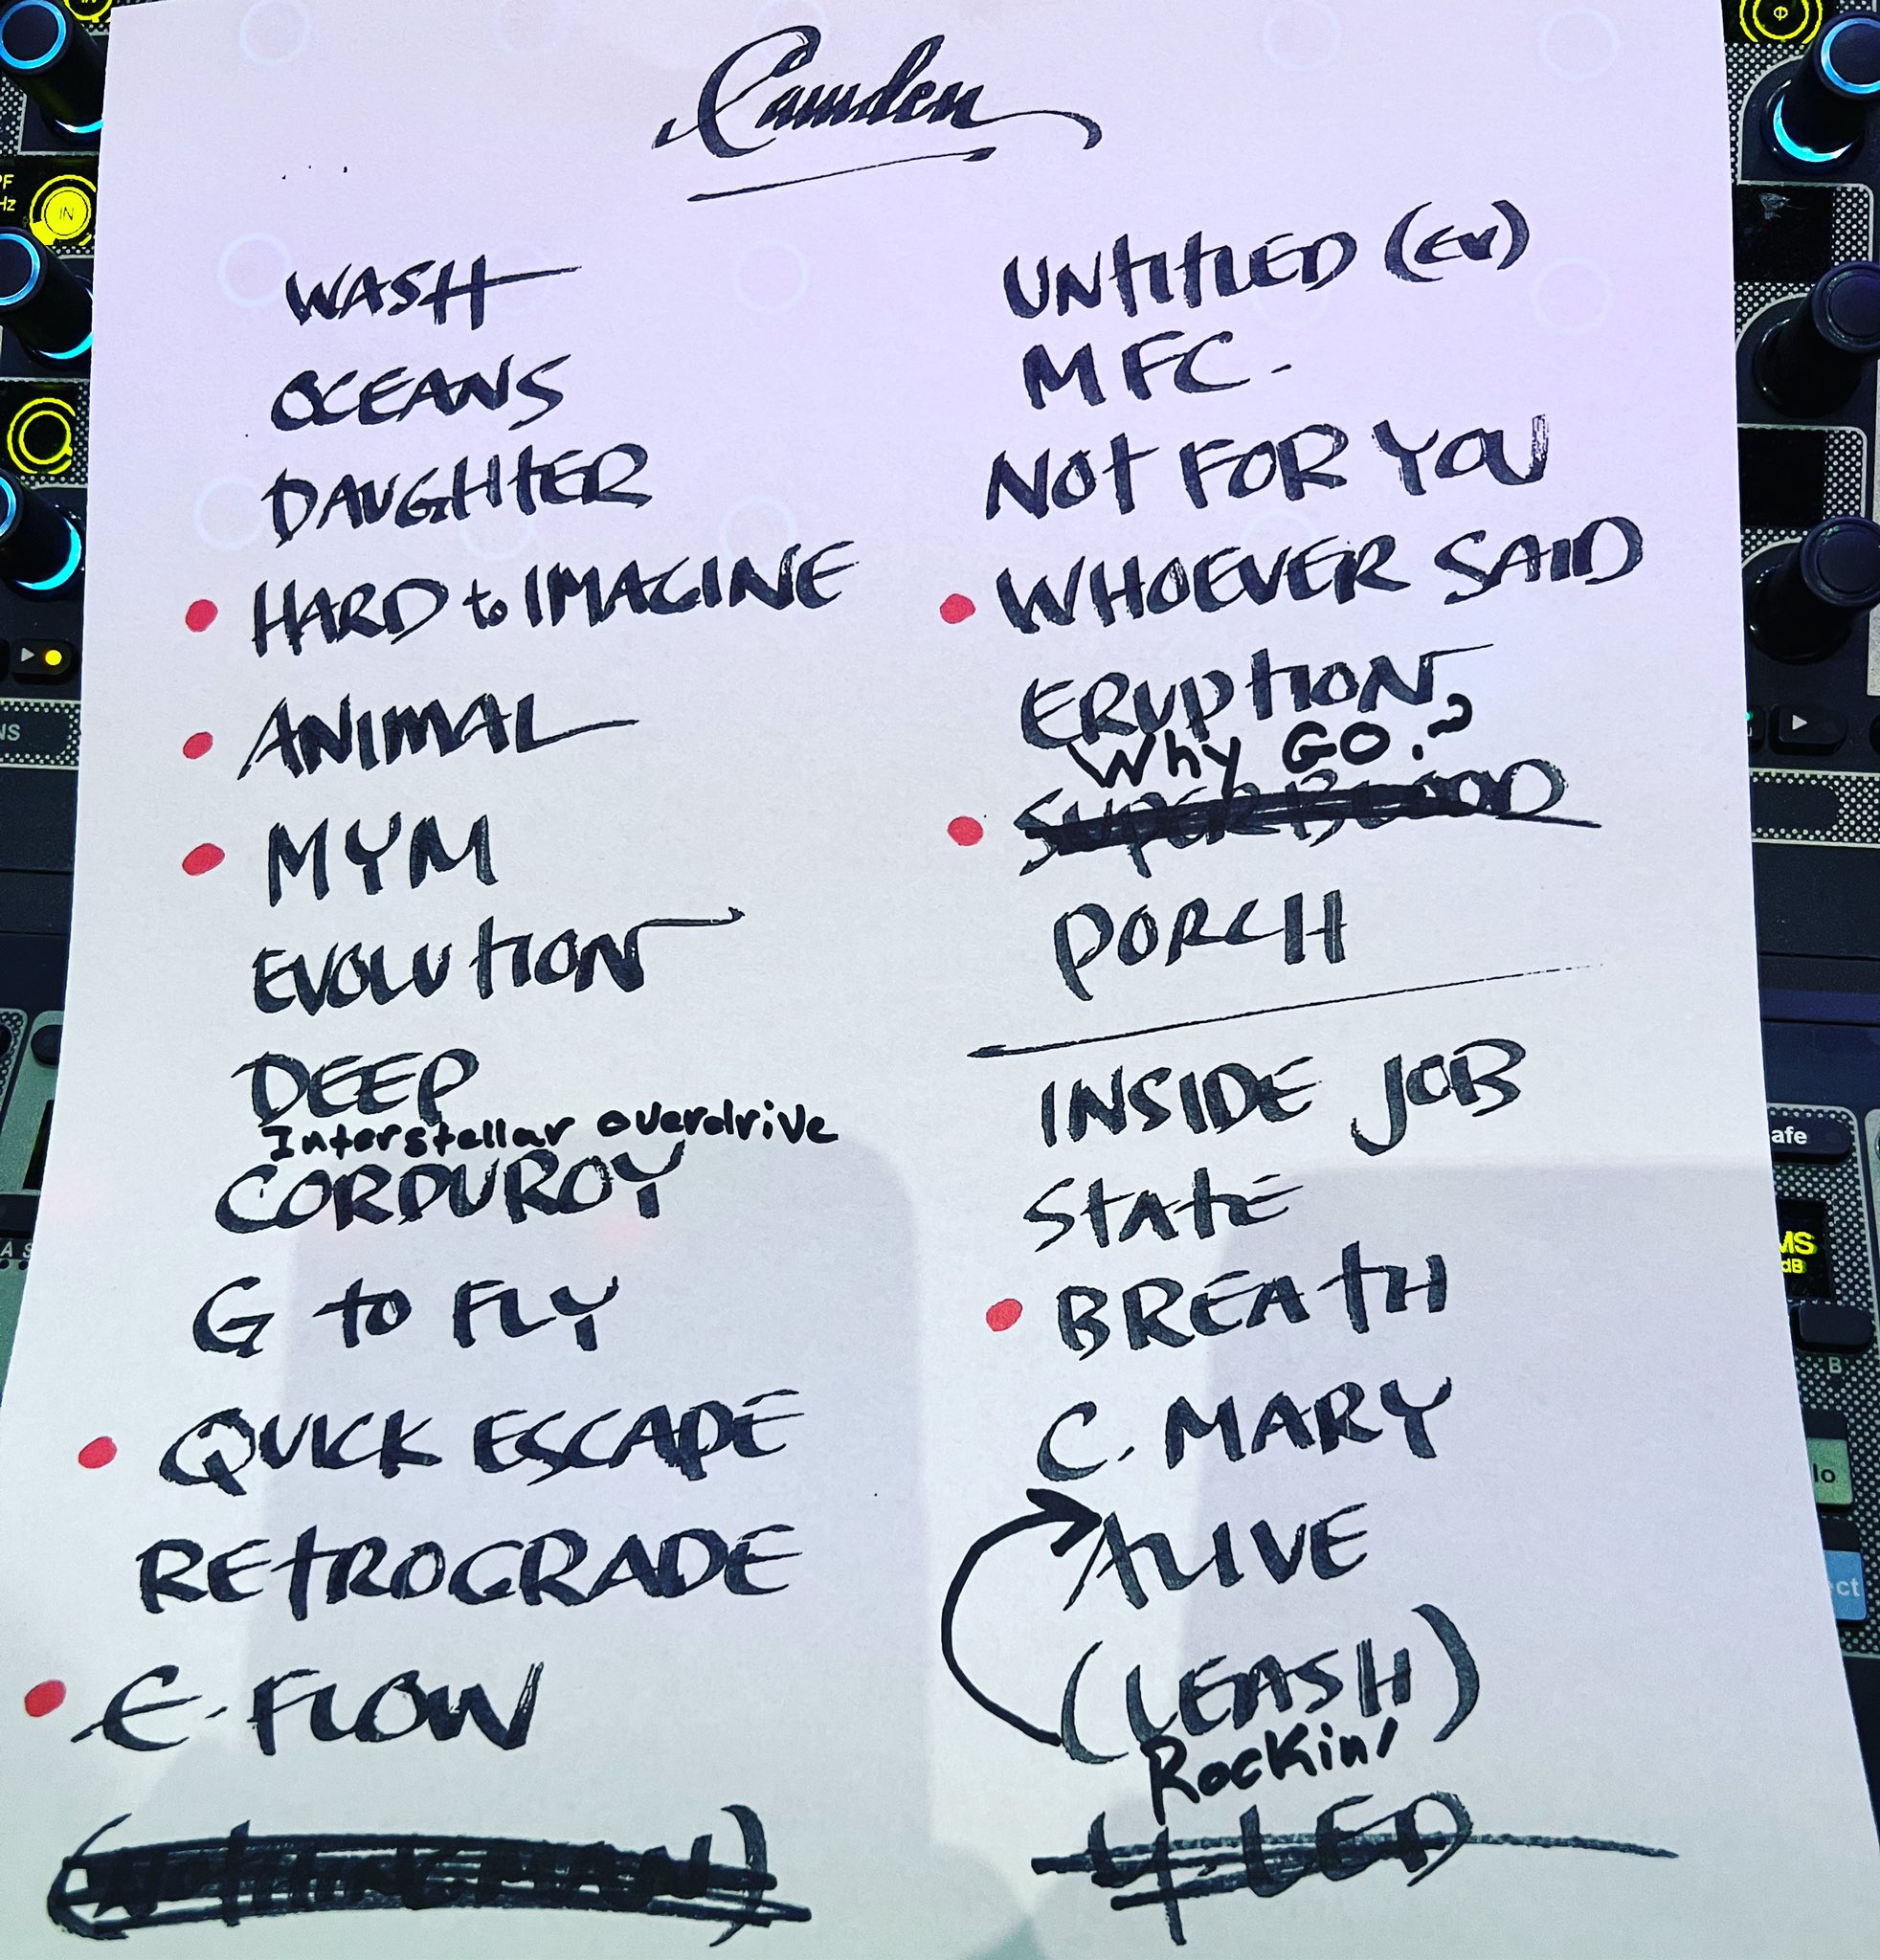 Camden
WASH
OCEANS
DAUGHTER
HARD to IMAGINE
ANIMAL
MYM
EVOLUTION
DEEP
Interstellar overdrive
CORDUROY
G to FLY
QUICK ESCAPE
RETROGRADE
E-FLOW
(NOTHINGMAN)
UNTITLED (EV)
MFC-
NOT FOR YOU
WHOEVER SAID
ERUPTION
Why GO?
SUPERBLOOD
PORCH
INSIDE JOB
STATE
BREATH
C. MARY
ALIVE
(LEASH)
Rockin'
Y. LED
IN
NS
afe
MS
dB
B
lo
ct